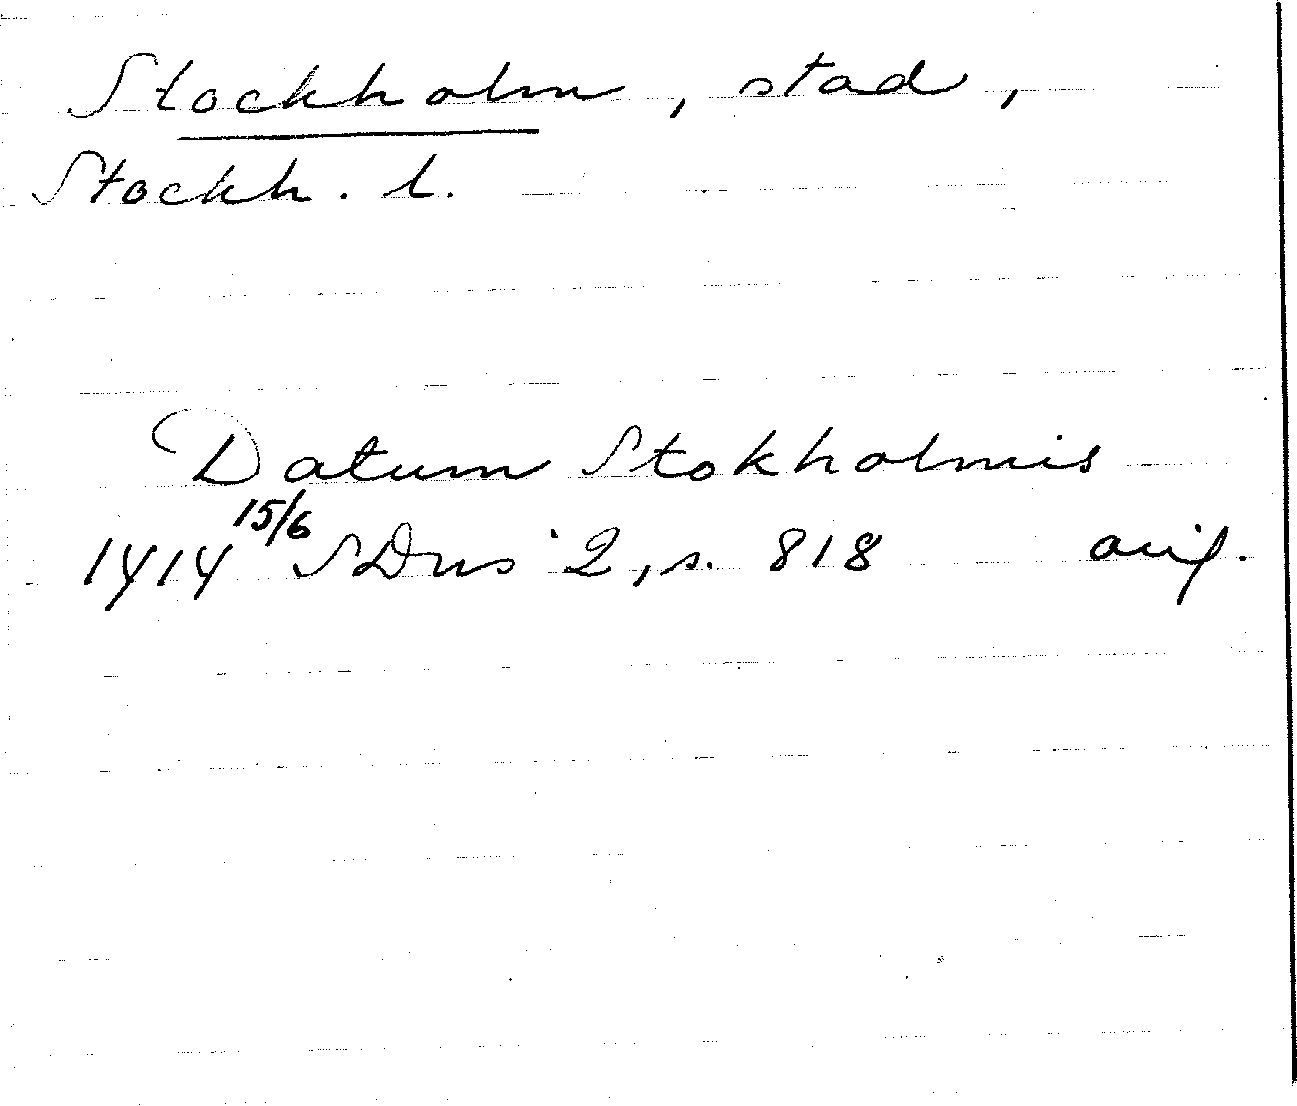 Stockholm, stad,
Stockh. l.
Datum Stokholmis
1414 15/6 SDns 2, s. 818 orig.